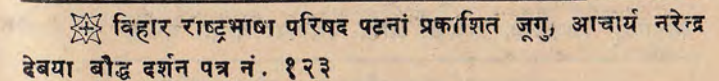 बिहार राष्ट्रभाषा परिषद पटनां प्रकाशित जूगु, आचार्य नरेन्द्र
देबया बौद्ध दर्शन पत्र नं. १२३